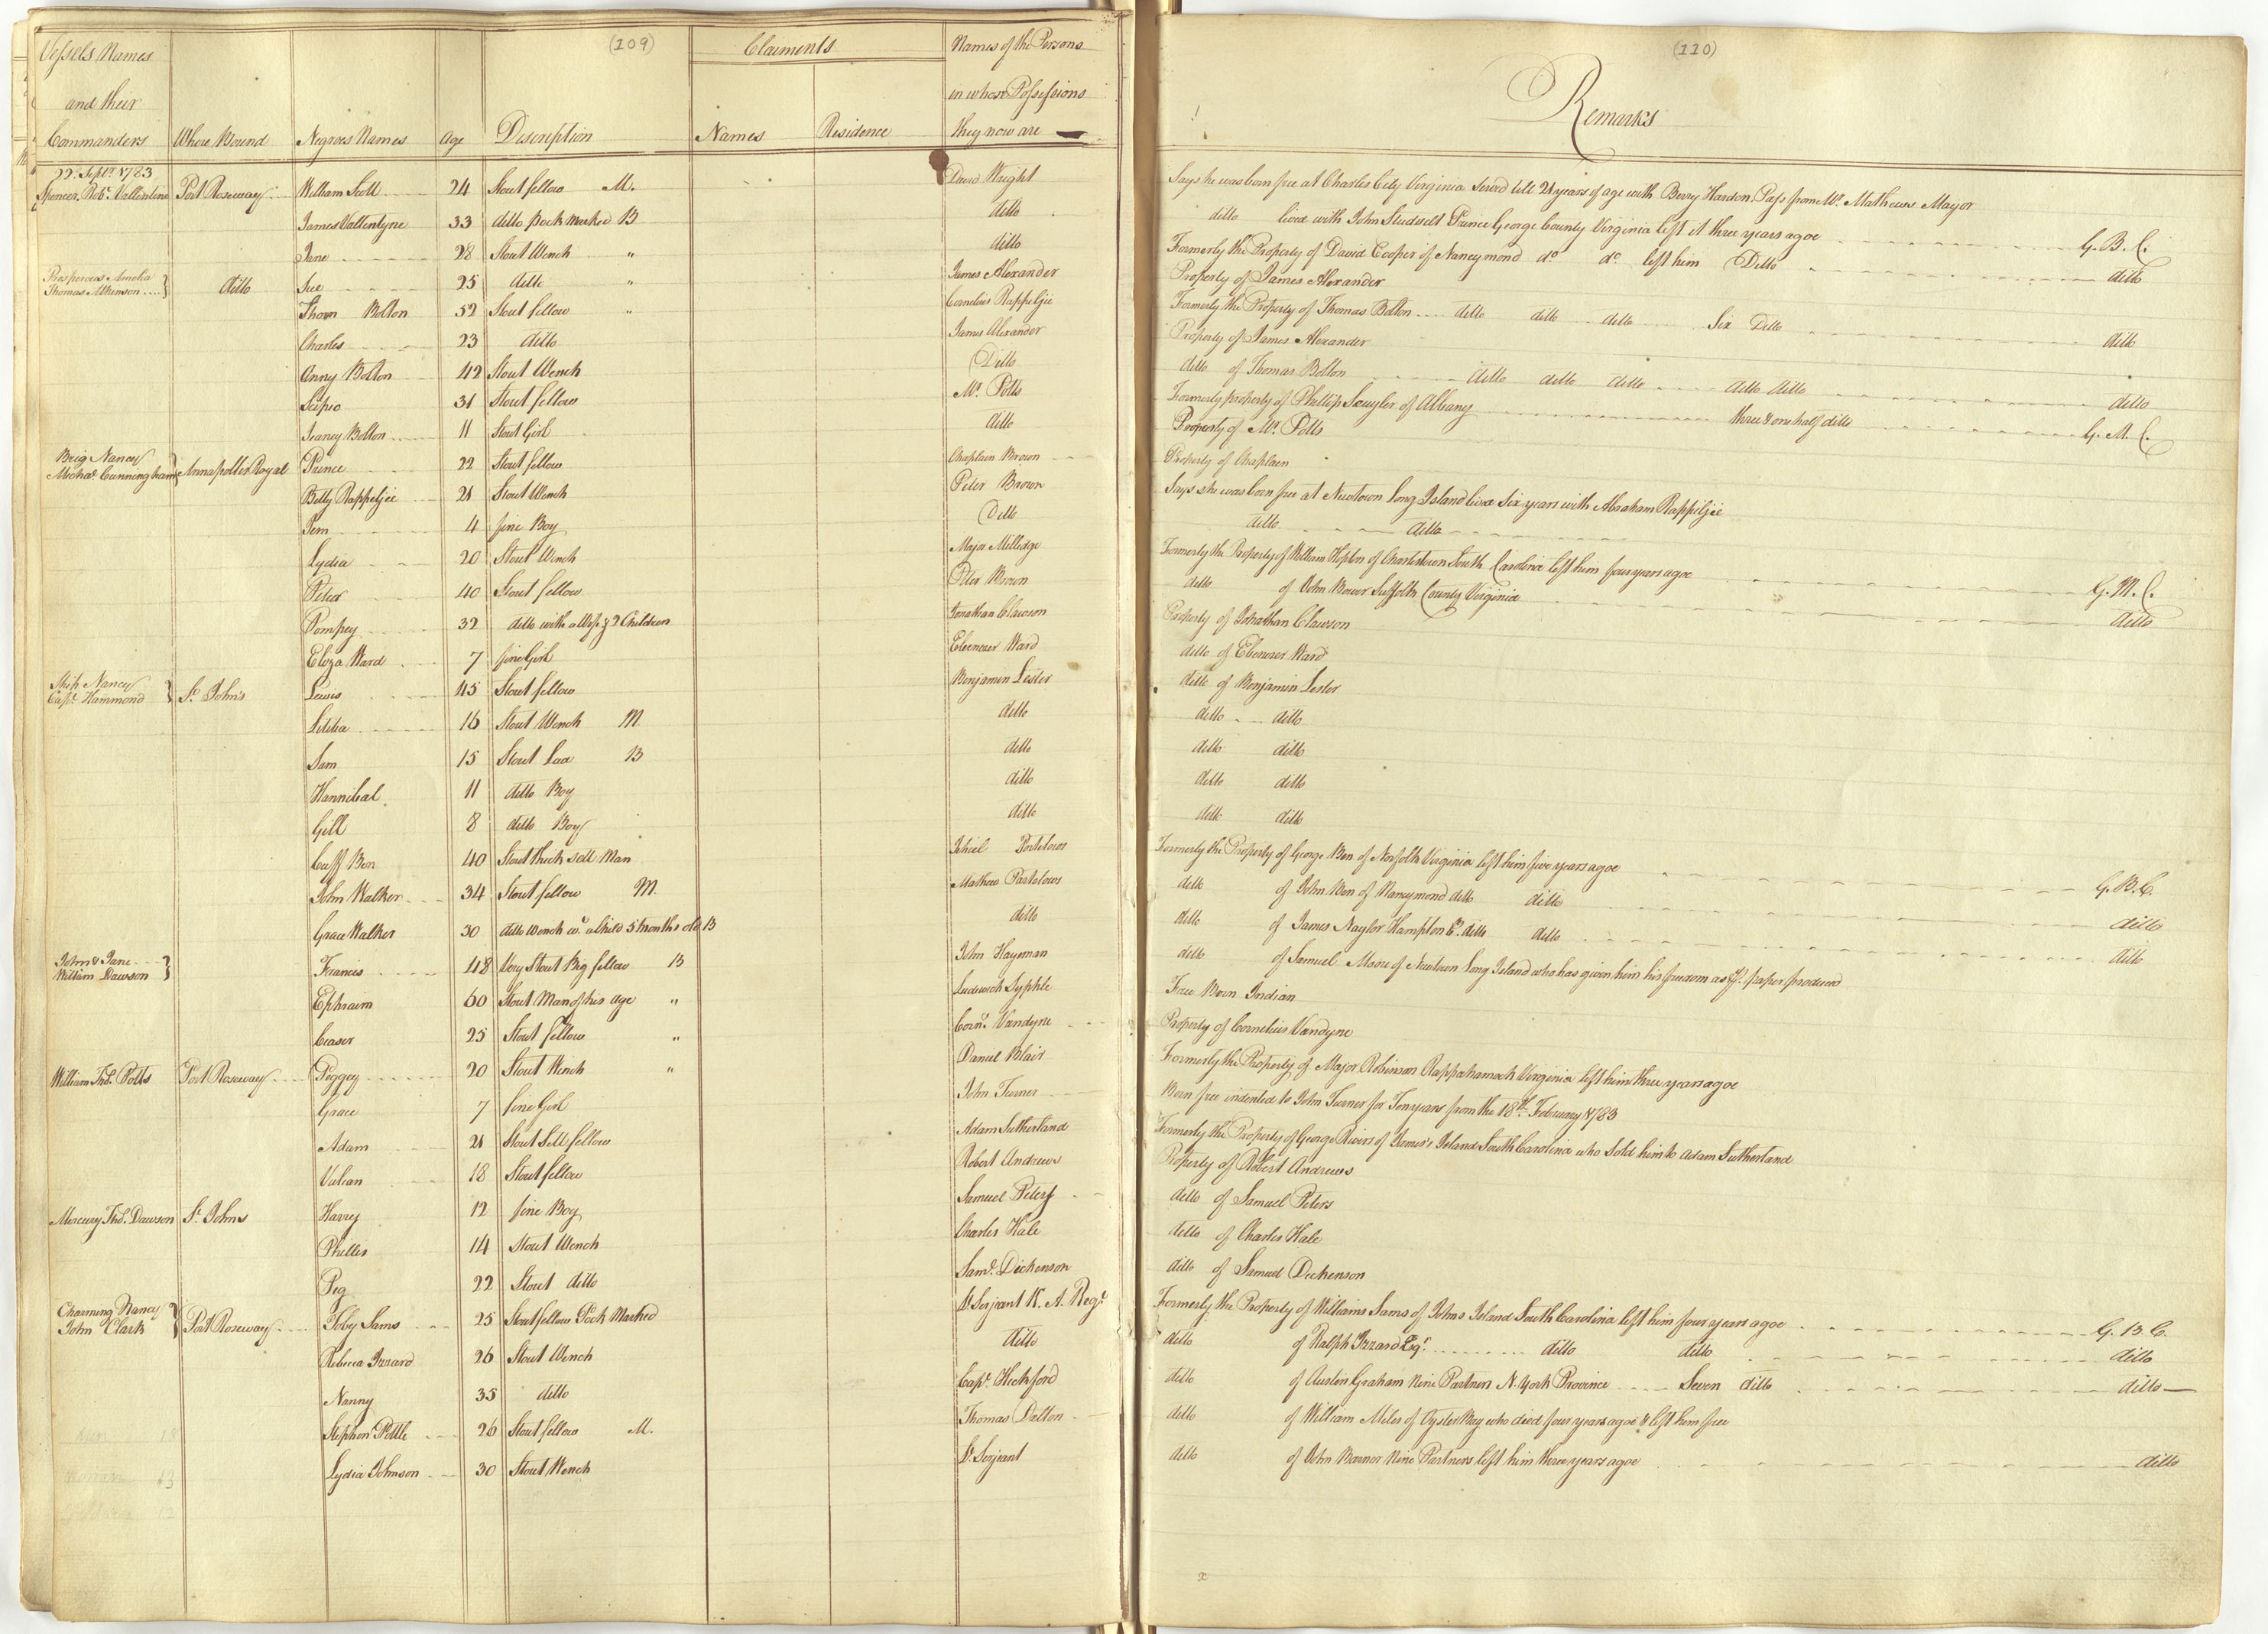 (109)
Vessels Names and their Commanders
Where Bound
Negroes Names
Age
Description
Claiments
Names
Residence
Names of the Persons in whose Possessions they now are
(110)
Remarks
22. Septr 1783
Spencer, Robt. Vallentine Port Roseway William Scott 24 Stout fellow M. David Wright Says he was born free at Charles City Virginia Served till 21 years of age with Berry Hardon. Pass from Mr. Mathews Mayor
James Vallentyne 33 ditto Pock marked B ditto ditto lived with John Studdell Prince George County Virginia left it three years agoe G. B. C.
Jane 28 Stout Wench " ditto Formerly the Property of David Cooper of Nancymond do do left him Ditto ditto
Prosperous Amelia Thomas Atkinson ditto Sue 25 ditto " James Alexander Property of James Alexander
Thom Bolton 52 Stout fellow " Cornelius Rappeljie Formerly the Property of Thomas Bolton ditto ditto ditto Six Ditto ditto
Charles 23 ditto James Alexander Property of James Alexander
Anny Bolton 42 Stout Wench Ditto ditto of Thomas Bolton ditto ditto ditto ditto ditto ditto
Scipio 31 Stout fellow Mr. Potts Formerly property of Phillip Scuyler of Albany three & one half ditto G. M. C.
Jeaney Bolton 11 Stout Girl ditto Property of Mr. Potts
Brig Nancy Michal. Cunningham Annapolles Royal Prince 22 Stout fellow Chaplain Brown Property of Chaplain
Betty Rappeljie 21 Stout Wench Peter Brown Says she was born free at Newtown Long Island lived Six years with Abraham Rappeljie
Pem 4 fine Boy Ditto ditto ditto
Lydia 20 Stout Wench Major Milledge Formerly the Property of William Hopton of Charlestown South Carolina left him four years agoe G. M. C.
Peter 40 Stout fellow Peter Brown ditto of John Bower Suffolk County Virginia ditto
Pompey 32 ditto with a Wife & 2 Children Jonathan Clawson Property of Johathan Clawson
Eloza Ward 7 fine Girl Ebenezer Ward ditto of Ebenezer Ward
Ship Nancy Capt. Hammond St. John's Lewis 45 Stout fellow Benjamin Lester ditto of Benjamin Lester
Lididia 16 Stout Wench M ditto ditto ditto
Sam 15 Stout Lad B ditto ditto ditto
Hannibal 11 ditto Boy ditto ditto ditto
Gill 8 ditto Boy ditto ditto ditto
Cuff Ben 40 Stout thick sett Man Jehiel Partelows Formerly the Property of George Ben of Norfolk Virginia left him five years agoe G. B. C.
John Walker 34 Stout fellow M. Mathew Partelows ditto of John Ben of Nancymond ditto ditto ditto
Grace Walker 30 ditto wench wt. a Child 5 months old B ditto ditto of James Naylor Hampton Co. ditto ditto ditto
John & Jane William Dawson Francis 48 Very Stout Big fellow B John Hayman ditto of Samuel Moore of Newtown Long Island who has given him his freedom as pr. paper produced
Ephraim 60 Stout Man of his age " Ludewich Syphle Free Born Indian
Ceaser 25 Stout fellow " Corns. Vandyne Property of Cornelius Vandyne
William Ths. Potts Port Roseway Peggey 20 Stout Wench " Daniel Blair Formerly the Property of Major Robinson Rappahamack Virginia left him three years agoe
Grace 7 fine Girl John Turner Born free indented to John Turner for Ten years from the 18th February 1783
Adam 21 Stout Sett fellow Adam Sutherland Formerly the Property of George Rivers of James's Island South Carolina who Sold him to Adam Sutherland
Vulcan 18 Stout fellow Robert Andrews Property of Robert Andrews
Mercury Ths. Dawson St. Johns Harry 12 fine Boy Samuel Peters ditto of Samuel Peters
Phillis 14 Stout Wench Charles Hale ditto of Charles Hale
Peg 22 Stout ditto Saml. Dickenson ditto of Samuel Dickenson
Charming Nancy John Clark Port Roseway Toby Sams 25 Stout fellow Pock Marked Dr. Serjeant R. A. Regt. Formerly the Property of Williams Sams of Johns Island South Carolina left him four years agoe G. B. C.
Rebecca Izzard 26 Stout Wench ditto ditto of Ralph Izzard Esqr. ditto ditto ditto
Nanny 35 ditto Capt. Hickford ditto of Austin Graham Nine Partners N. York Province Seven ditto ditto
Stephen Pottle 26 Stout fellow M. Thomas Dalton ditto of William Miles of Oyster Bay who died four years agoe & left him free
Lydia Johnson 30 Stout Wench Dr. Serjeant ditto of John Barnor Nine Partners left him three years agoe ditto